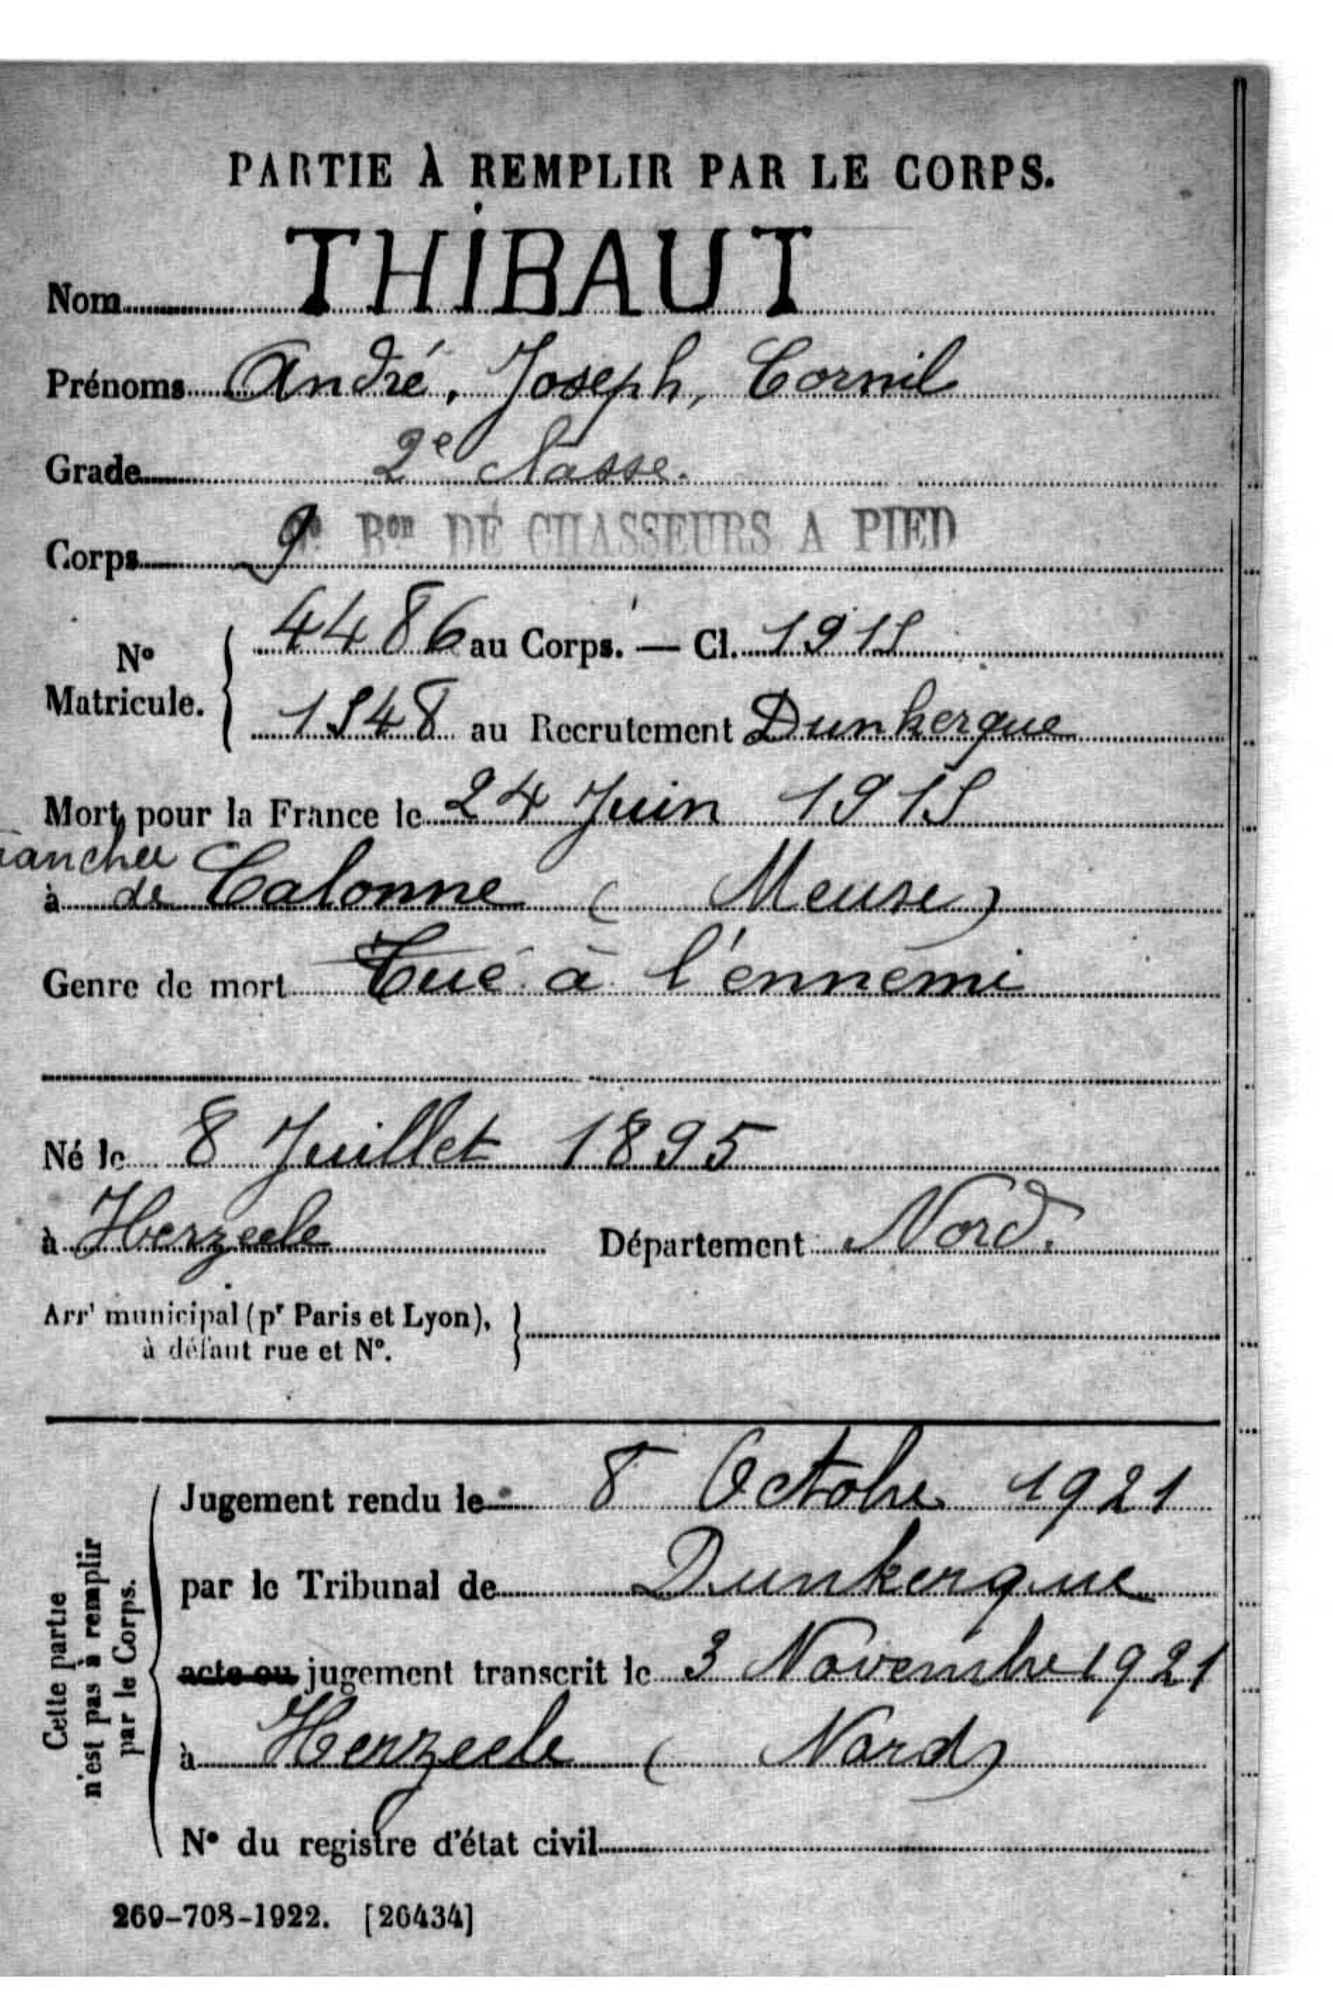 PARTIE À REMPLIR PAR LE CORPS.
Nom THIBAUT
Prénoms André, Joseph, Cornil
Grade 2e classe.
Corps 9e Bon DE CHASSEURS A PIED
No Matricule. { 4486 au Corps. — Cl. 1915
1548 au Recrutement Dunkerque
Mort pour la France le 24 Juin 1915
tranchée
à de Calonne (Meuse)
Genre de mort Tué à l'ennemi
Né le 8 Juillet 1895
à Herzeele Département Nord.
Arrt municipal (pr Paris et Lyon), }
à défaut rue et No.
Cette partie
n'est pas à remplir
par le Corps.
Jugement rendu le 8 Octobre 1921
par le Tribunal de Dunkerque
acte ou jugement transcrit le 3 Novembre 1921
à Herzeele (Nord)
No du registre d'état civil
269-708-1922. [26434]